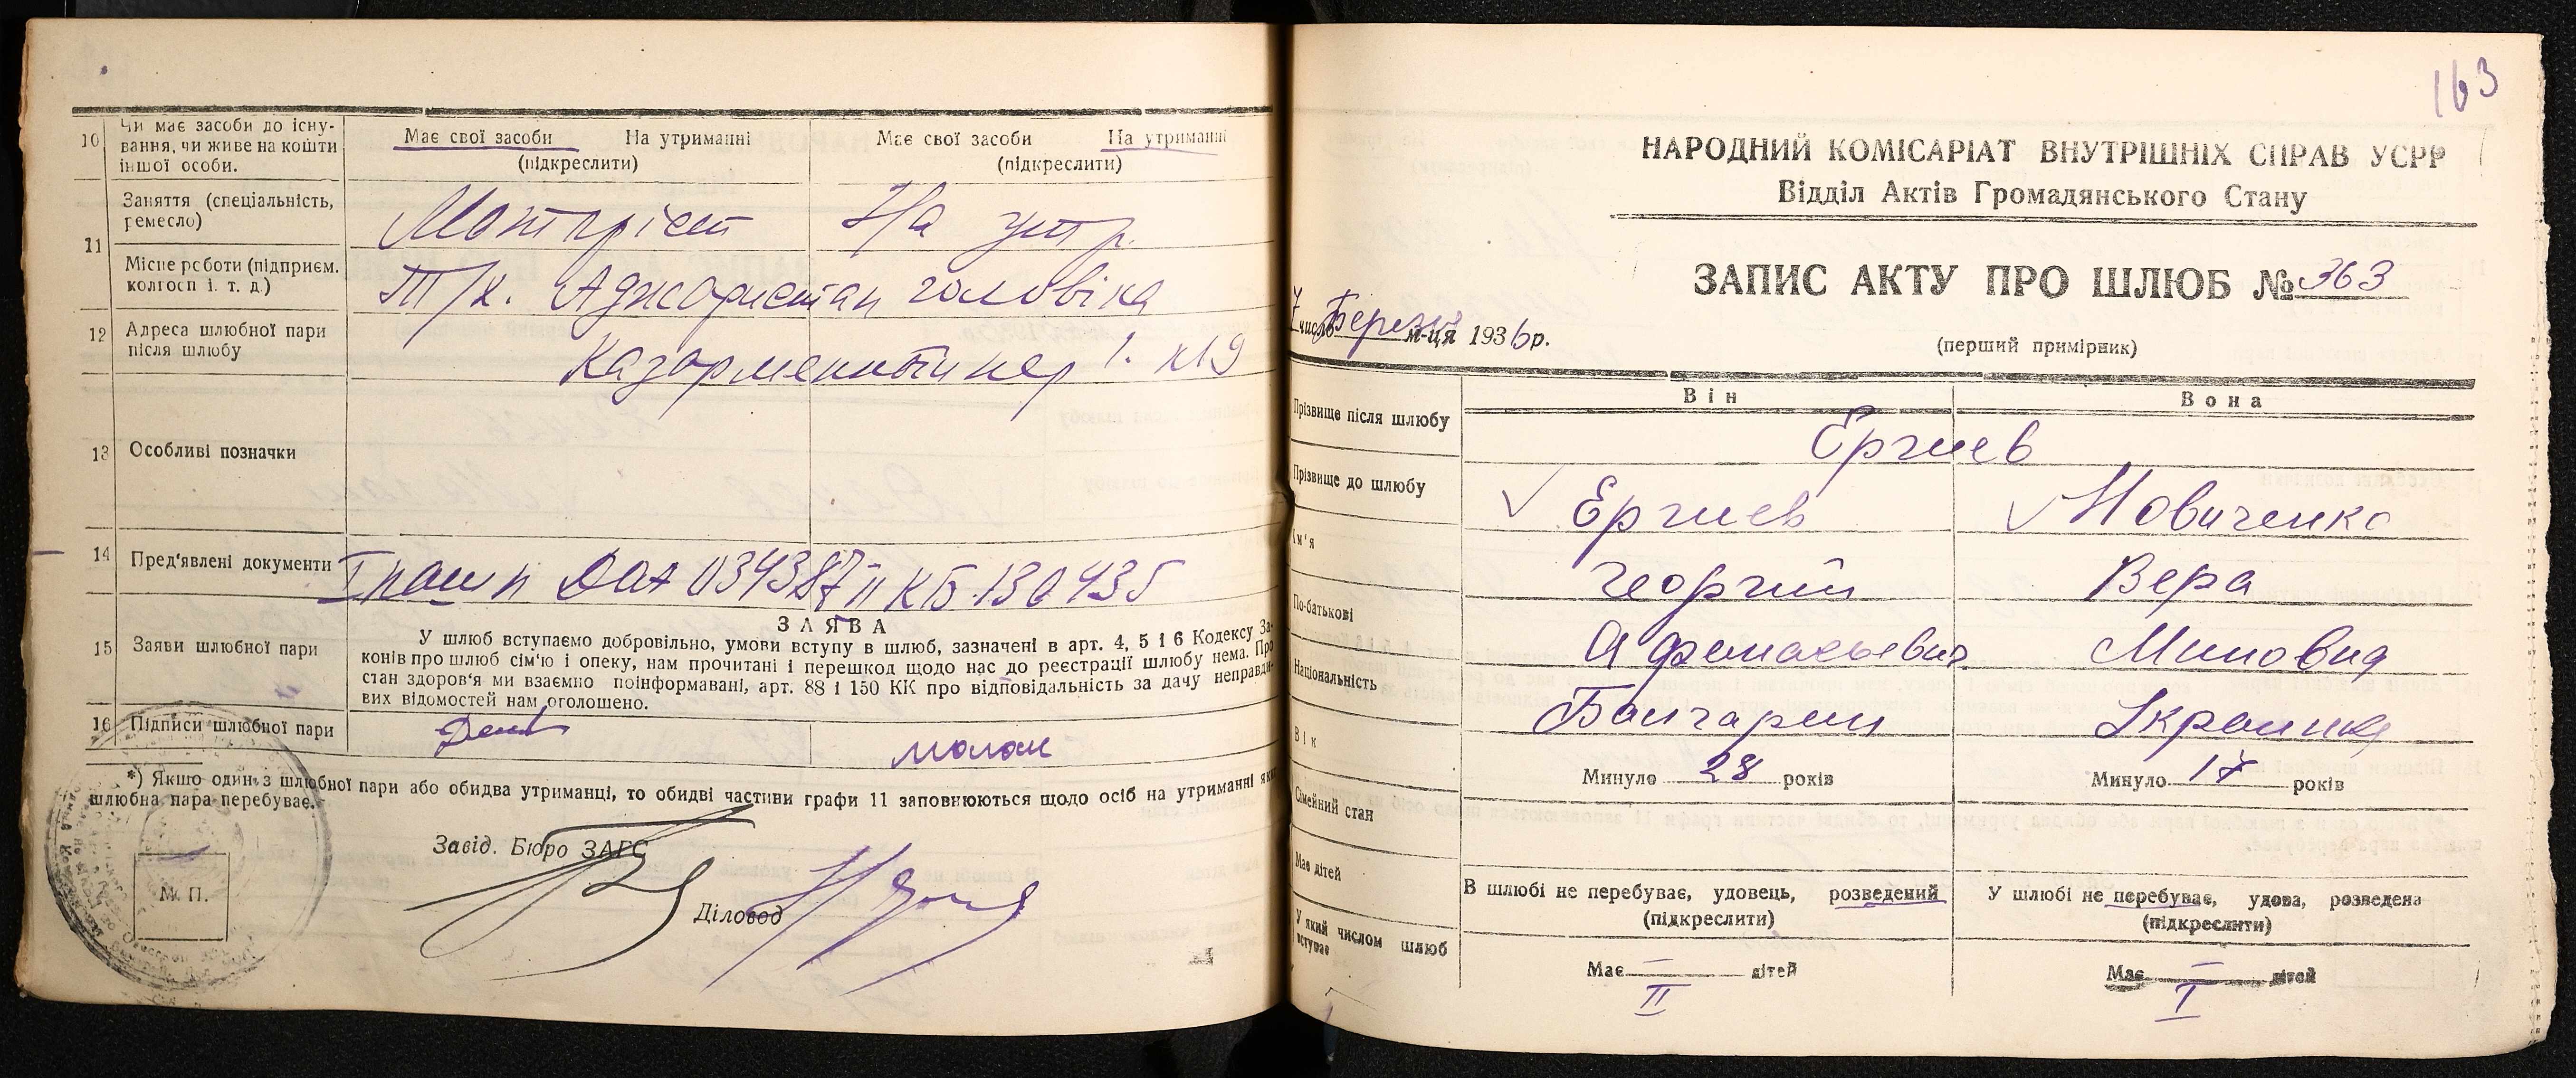 10 Чи має засоби до існування, чи живе на кошти іншої особи.
Має свої засоби На утриманні
(підкреслити)
Має свої засоби На утриманні
(підкреслити)
11 Заняття (спеціальність, ремесло)
Моторіст
На утр.
Місце роботи (підприєм. колгосп і. т. д.)
Т/х. Аджаристан чоловіка
12 Адреса шлюбної пари після шлюбу
Казарменный пер 1. к 19
13 Особливі позначки
14 Пред'явлені документи
034387 II КБ 130435
15 Заяви шлюбної пари
ЗАЯВА
У шлюб вступаємо добровільно, умови вступу в шлюб, зазначені в арт. 4, 5 і 6 Кодексу За-
конів про шлюб сім'ю і опеку, нам прочитані і перешкод щодо нас до реєстрації шлюбу нема. Про
стан здоров'я ми взаємно поінформавані, арт. 88 і 150 КК про відповідальність за дачу неправди-
вих відомостей нам оголошено.
16 Підписи шлюбної пари
*) Якщо один з шлюбної пари або обидва утриманці, то обидві частини графи 11 заповнюються щодо осіб на утриманні яких
шлюбна пара перебуває.
Завід. Бюро ЗАГС
М. П.
Діловод
163
НАРОДНИЙ КОМІСАРІАТ ВНУТРІШНІХ СПРАВ УСРР
Відділ Актів Громадянського Стану
ЗАПИС АКТУ ПРО ШЛЮБ № 363
7 число Березня м-ця 1936 р.
(перший примірник)
Він Вона
Прізвище після шлюбу Ергиев
Прізвище до шлюбу Ергиев Новиченко
Ім'я Георгий Вера
По-батькові Афанасьевич Миновна
Національність Болгарин Украинка
Вік Минуло 28 років Минуло 17 років
Сімейний стан
В шлюбі не перебуває, удовець, розведений
(підкреслити)
У шлюбі не перебуває, удова, розведена
(підкреслити)
Має дітей
Має — дітей Має — дітей
У який числом шлюб вступає
II I